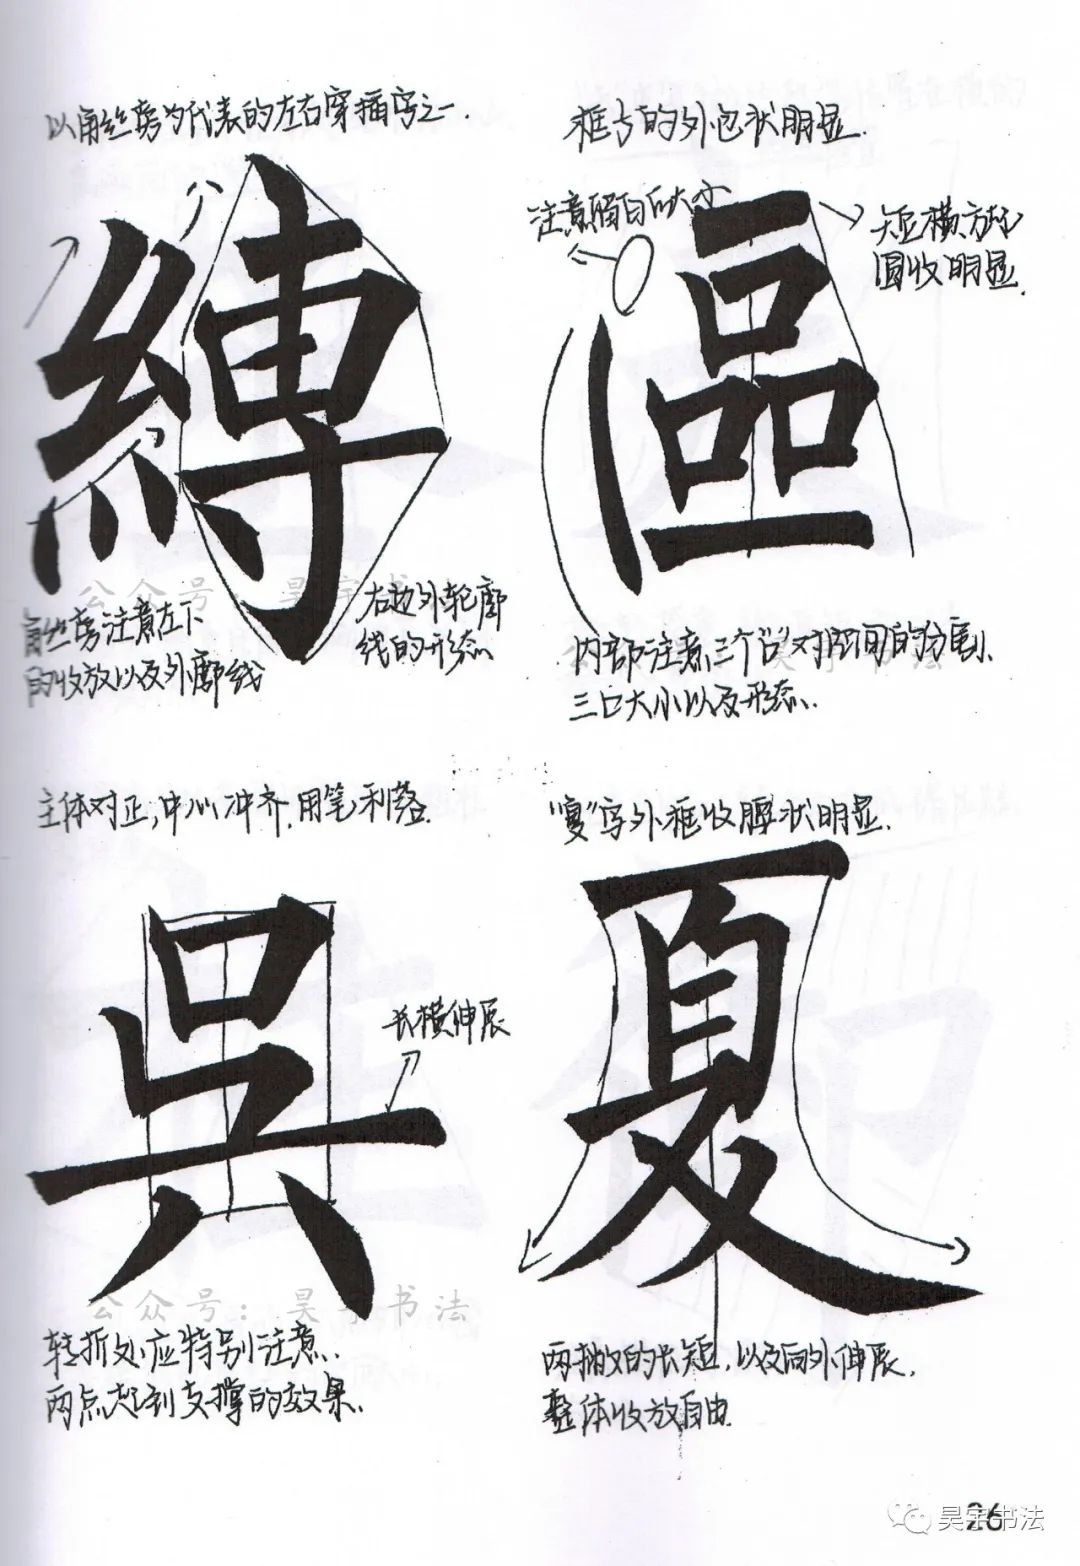 以角丝旁为代表的左右穿插字之一.
縛
角丝旁注意左下
的收放以及外廓线
右边外轮廓
线的形态
框与的外包状明显.
注意留白的大小
區
短横方起
圆收明显.
内部注意三个"口"对空间的分割、
三口大小以及形态.
主体对正,中心冲齐.用笔利落.
吳
长横伸展
转折处应特别注意、
两点起到支撑的效果.
"夏"字外框收腰状明显.
夏
两撇的长短,以及向外伸展,
整体收放自由.
公众号:昊宇书法
公众号:昊宇书法
26
昊宇书法